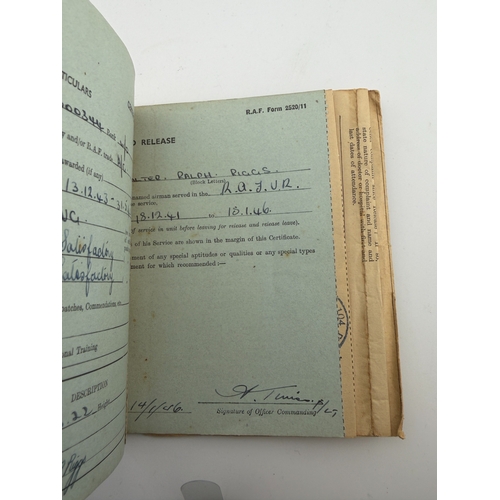 TICULARS
00344
and/or R.A.F. trade
warded (if any)
13.12.43
Satisfactory
Satisfactory
patches, Commendation, etc.
onal Training
DESCRIPTION
22 Height
R.A.F. Form 2520/11
D RELEASE
TER RALPH RIGGS
(Block Letters)
named airman served in the R.A.F.V.R.
e service,
13.12.41 to 13.1.46.
of service in unit before leaving for release and release leave).
of his Service are shown in the margin of this Certificate.
ement of any special aptitudes or qualities or any special types
yment for which recommended :—
14/1/46.
Signature of Officer Commanding
state nature of complaint and name and
address of doctor or hospital with first and
last dates of attendance.